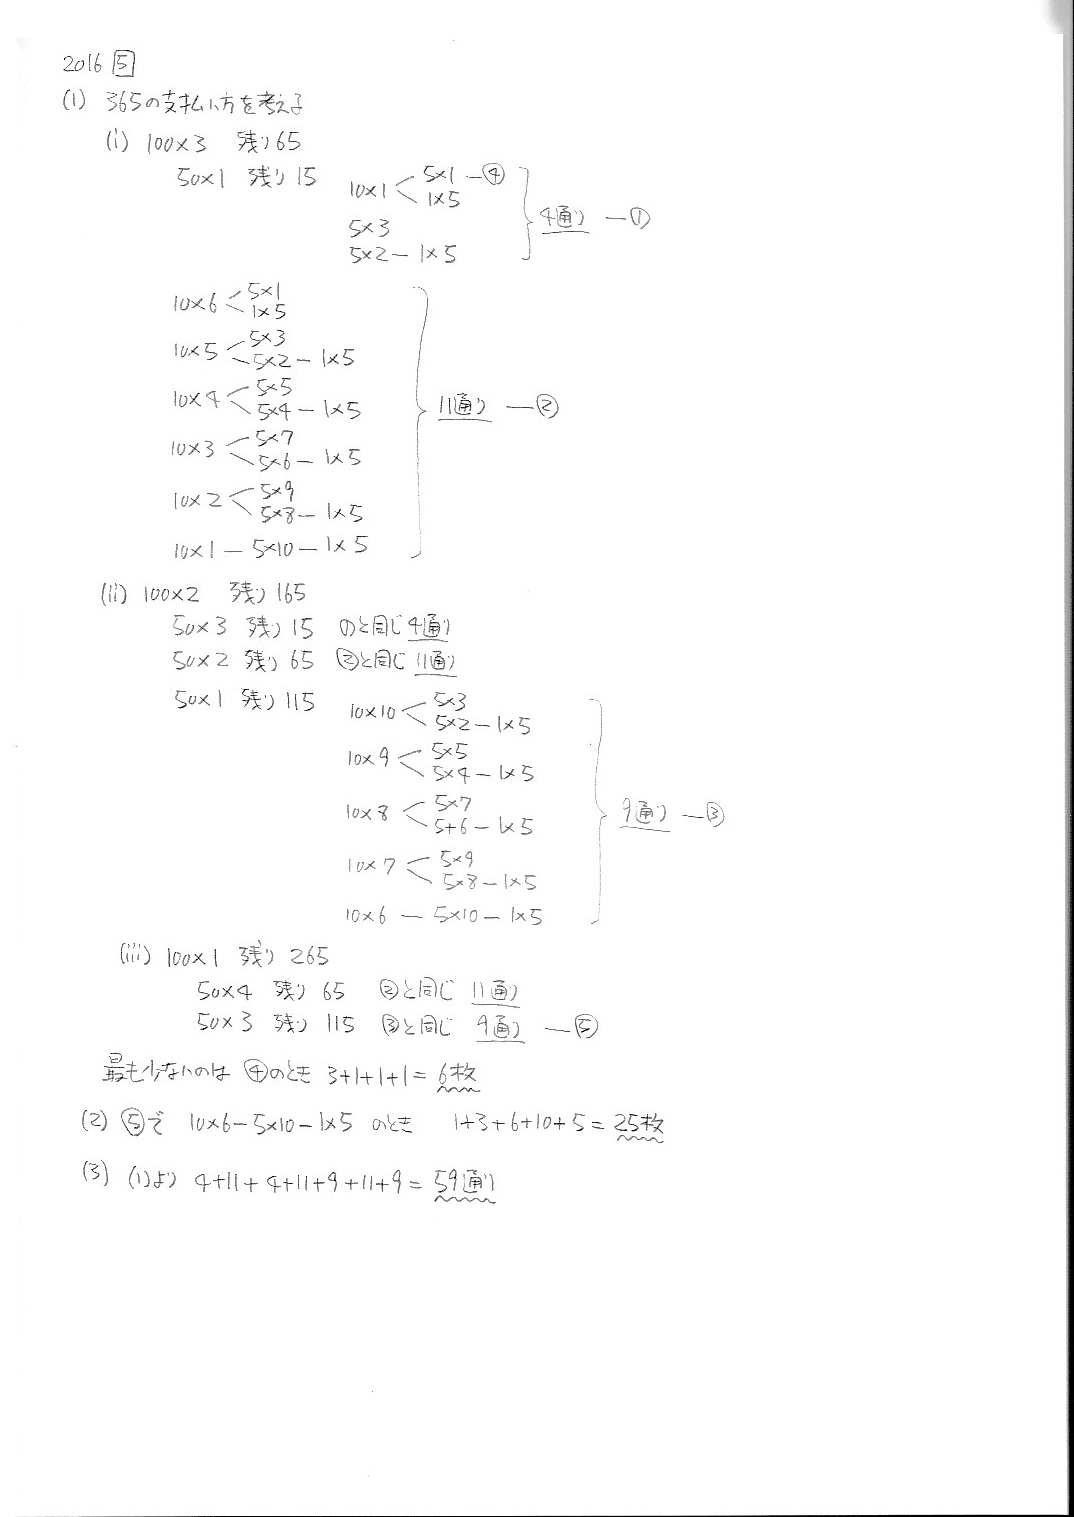 2016 5
(1) 365の支払い方を考える
(i) 100×3 残り65
50×1 残り15
10×1 < 5×1 — ④
1×5
5×3
5×2 — 1×5
4通り — ①
10×6 < 5×1
1×5
10×5 < 5×3
5×2 — 1×5
10×4 < 5×5
5×4 — 1×5
10×3 < 5×7
5×6 — 1×5
10×2 < 5×9
5×8 — 1×5
10×1 — 5×10 — 1×5
11通り — ②
(ii) 100×2 残り165
50×3 残り15 ①と同じ 4通り
50×2 残り65 ②と同じ 11通り
50×1 残り115
10×10 < 5×3
5×2 — 1×5
10×9 < 5×5
5×4 — 1×5
10×8 < 5×7
5+6 — 1×5
10×7 < 5×9
5×8 — 1×5
10×6 — 5×10 — 1×5
9通り — ③
(iii) 100×1 残り 265
50×4 残り 65 ②と同じ 11通り
50×3 残り 115 ③と同じ 9通り — ⑤
最も少ないのは ④のとき 3+1+1+1= 6枚
(2) ⑤で 10×6−5×10−1×5 のとき 1+3+6+10+5=25枚
(3) (1)より 4+11+4+11+9+11+9= 59通り